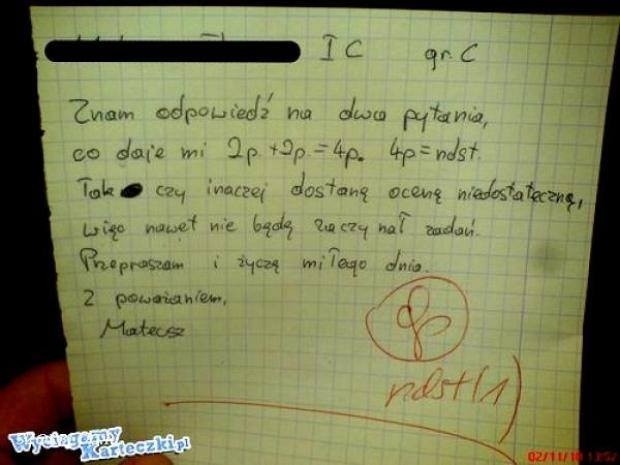 I C gr. C
Znam odpowiedź na dwa pytania,
co daje mi 2p. + 2p. = 4p. 4p = ndst.
Tak czy inaczej dostanę ocenę niedostateczną,
więc nawet nie będę zaczynał zadań.
Przepraszam i życzę miłego dnia.
Z poważaniem,
Mateusz
ndst (1)
Wyciągamy
Karteczki.pl